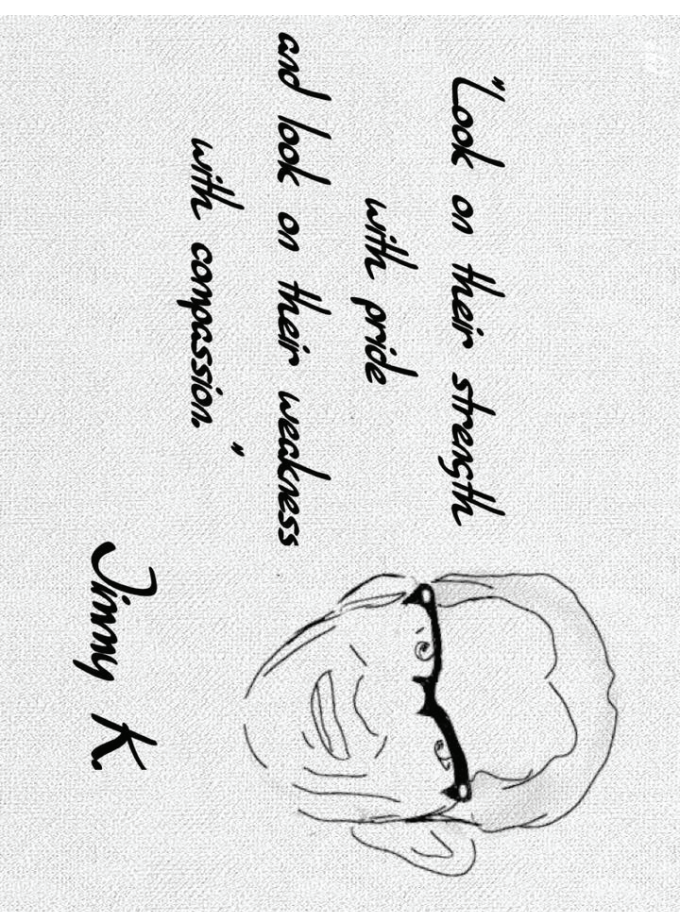 "Look on their strength
with pride
and look on their weakness
with compassion."
Jimmy K.